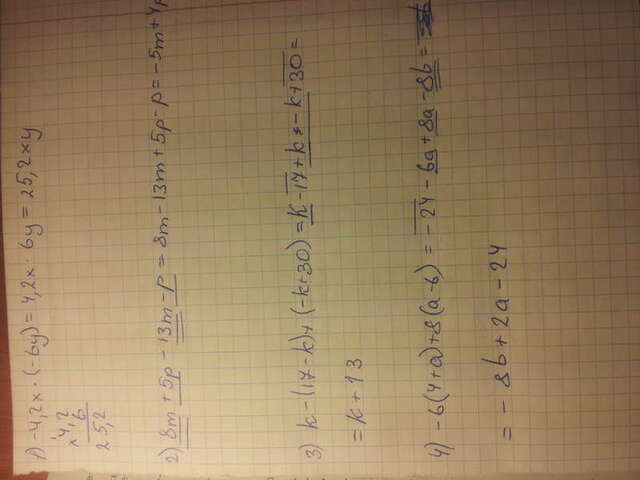 1) -4,2x · (-6y) = 4,2x · 6y = 25,2xy
x 4,2
6
25,2
2) 8m + 5p - 13m - p = 8m - 13m + 5p - p = -5m + 4p
3) k - (17 - k) + (-k + 30) = k - 17 + k - k + 30 =
= k + 13
4) -6(4+a) + 8(a-b) = -24 - 6a + 8a - 8b =
= -8b + 2a - 24